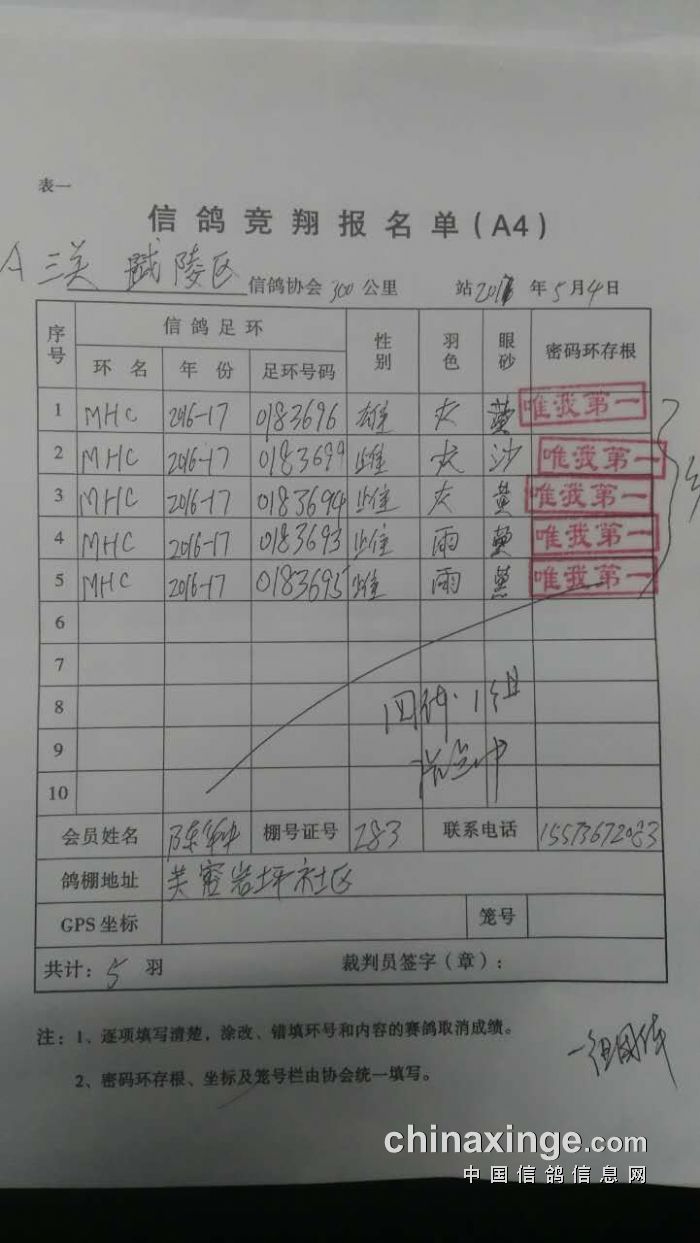 表一
信鸽竞翔报名单(A4)
A 三关 武陵区 信鸽协会 300 公里 站 2017 年 5 月 4 日
序号 信鸽足环 性别 羽色 眼砂 密码环存根
环名 年份 足环号码
1 MHC 2016-17 0183696 雄 灰 黄 唯我第一
2 MHC 2016-17 0183699 雌 灰 沙 唯我第一
3 MHC 2016-17 0183694 雌 灰 黄 唯我第一
4 MHC 2016-17 0183693 雌 雨 黄 唯我第一
5 MHC 2016-17 0183695 雌 雨 黄 唯我第一
6
7
8 1组
9
10
会员姓名 陈 棚号证号 283 联系电话 15573672083
鸽棚地址 芙蓉岩坪社区
GPS坐标 笼号
共计: 5 羽 裁判员签字(章):
注: 1、逐项填写清楚,涂改、错填环号和内容的赛鸽取消成绩。
一组团体
2、密码环存根、坐标及笼号栏由协会统一填写。
chinaxinge.com
中国信鸽信息网